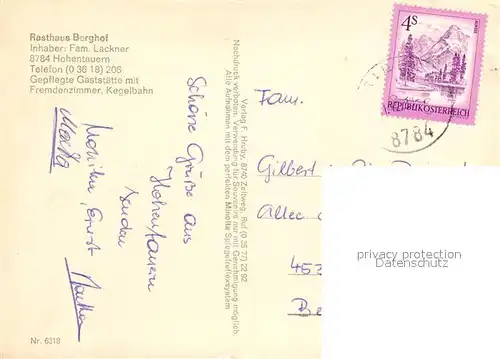 Rasthaus Berghof
Inhaber: Fam. Lackner
8784 Hohentauern
Telefon (0 36 18) 206
Gepflegte Gaststätte mit
Fremdenzimmer, Kegelbahn
Schöne Grüße aus
Hohentauern
senden
Monika, Ernst
Nr. 6318
Verlag F. Hruby, 8740 Zeltweg, Ruf (0 35 77) 22 92
Nachdruck verboten. Verwendung für Souvenirs nur mit Genehmigung möglich.
Alle Aufnahmen mit dem perfekten Minolta Spiegelreflexsystem
4S
REPUBLIK ÖSTERREICH
8784
Fam.
Gilbert
Allee
privacy protection
www.ansichtskarten-center.de